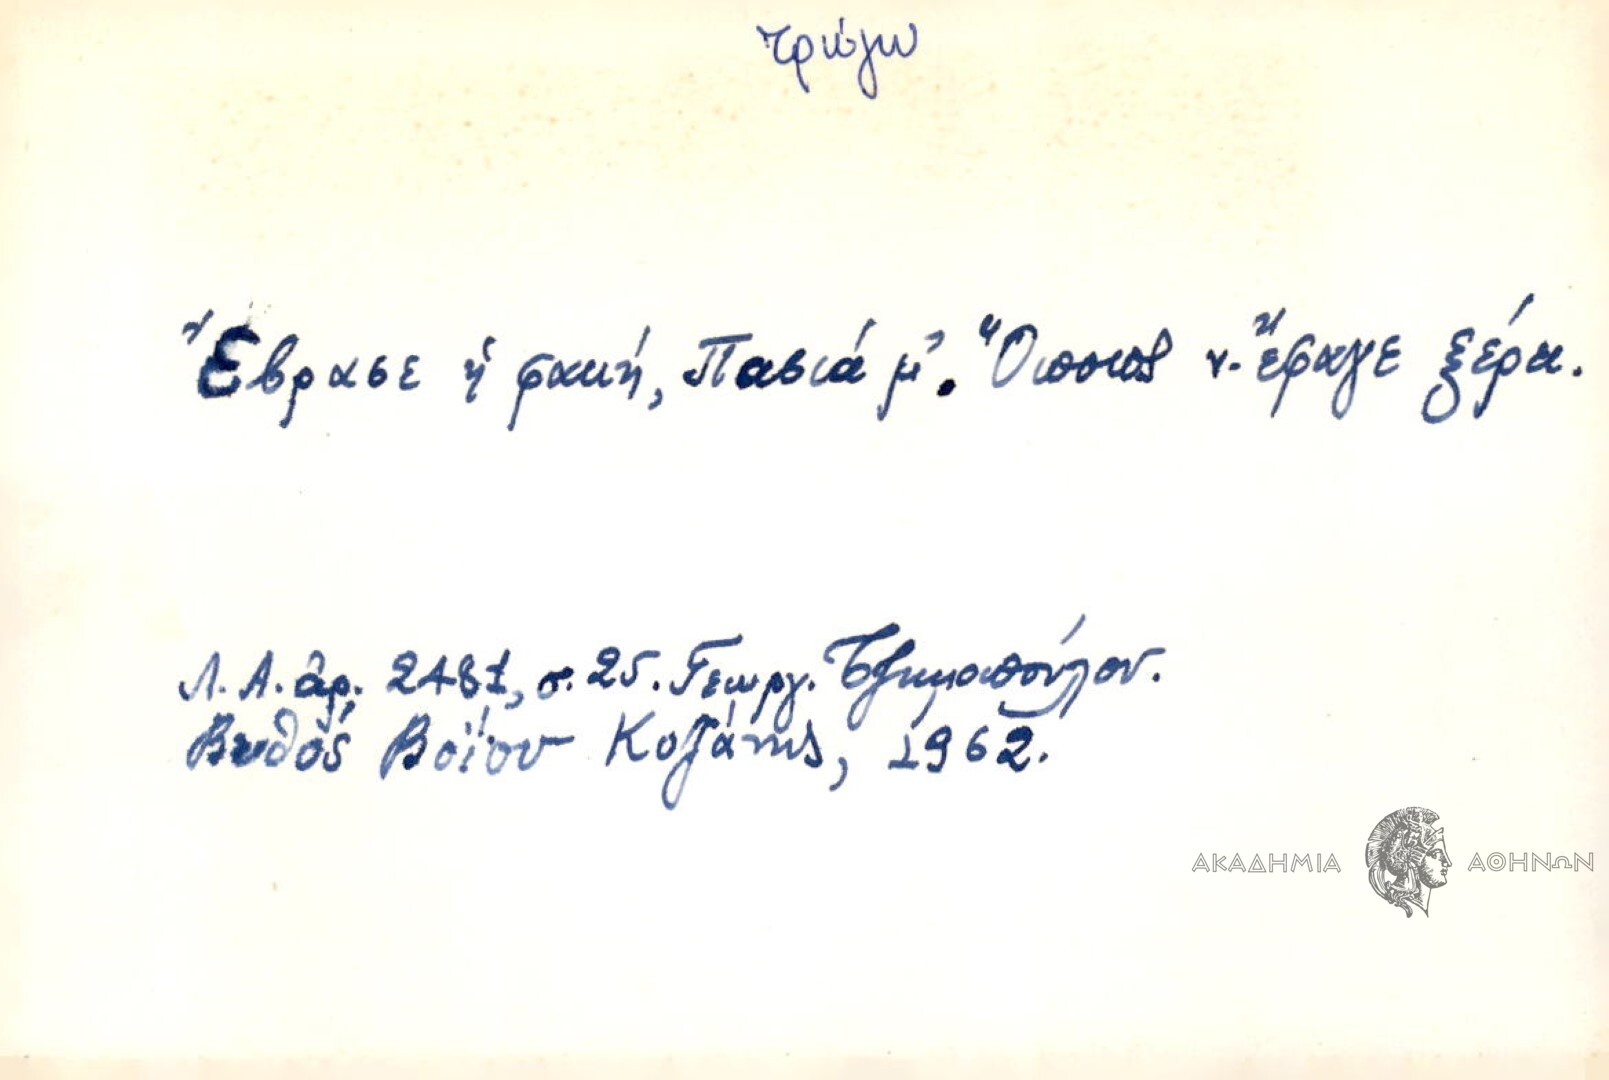 τρώγω
Ἔβρασε ἡ φακή, Πασιά μ'. Ὅποιος ν. ἔφαγε ξέρει.
Λ. Α. ἀρ. 2481, σ. 25. Γεωργ. Τζημοπούλου.
Βυθὸς Βοΐου Κοζάνης, 1962.
ΑΚΑΔΗΜΙΑ ΑΘΗΝΩΝ